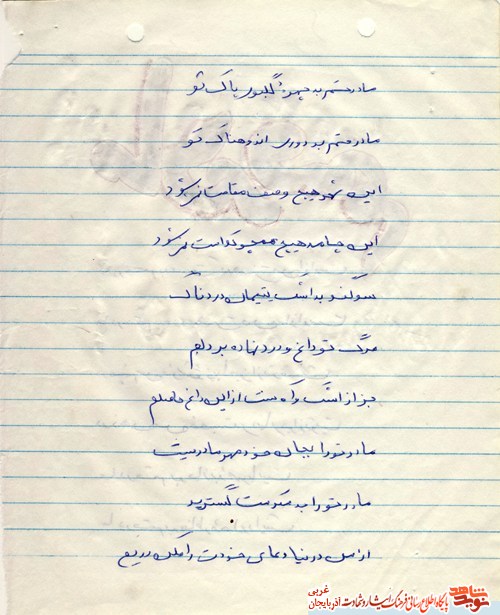 مادر قسم به چهره گلبوی پاک تو
مادر قسم به دوری اندوهناک تو
این شهر هیچ وصف مقامت نمی‌شود
این جامه هیچ همچو کدامت نمی‌شود
سوگند به اشک یتیمان دردناک
مرگ تو داغ و درد نهاده بر دلم
جز از اشک و آه نیست از این داغ حاصلم
مادر تو را بجان خود مهر مادریت
مادر تو را به مکرمت گستریت
از من دریغ
نوید شاهد
پایگاه اطلاع رسانی فرهنگ ایثار و شهادت آذربایجان غربی